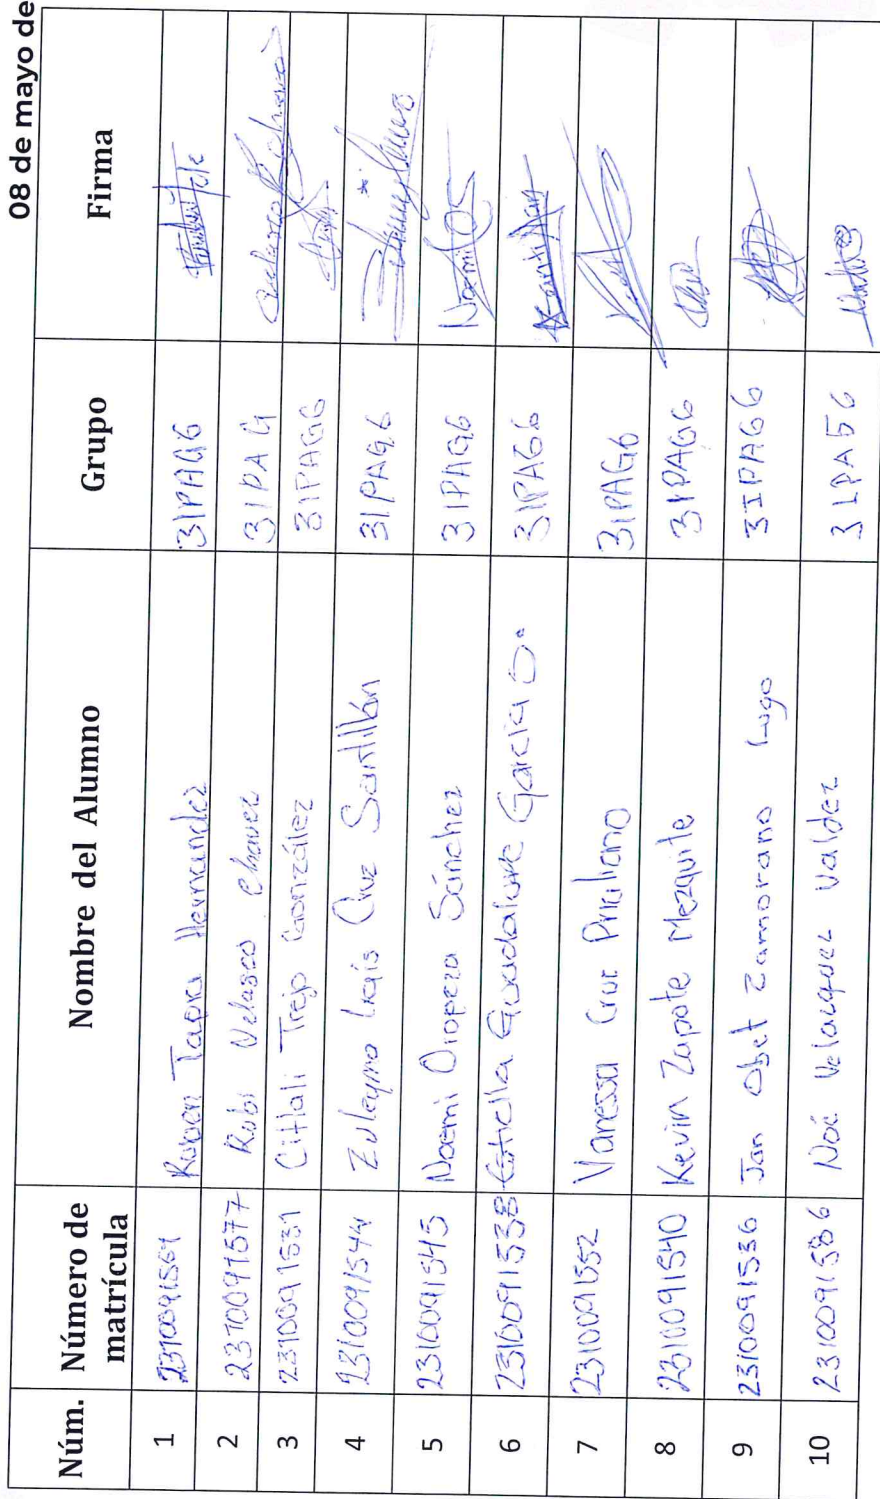 08 de mayo de
Núm. Número de matrícula Nombre del Alumno Grupo Firma
1 Ruben Tapia Hernandez 31PAG6
2 2310091577 Rubi Velasco Chavez 31PAG
3 2310091531 Citlali Trejo González 31PAG6
4 2310091544 Zuleyma Liais Cruz Santillán 31PAG6
5 2310091545 Noemi Oropeza Sánchez 31PAG6
6 2310091538 Estrella Guadalupe García S. 31PAG6
7 2310091552 Vanessa Cruz Prisiliano 31PAG6
8 2310091540 Kevin Zapote Mezquite 31PAG6
9 2310091536 Jan Obet Zamorano Lugo 3IPAG6
10 2310091586 Noé Velacquez Valdez